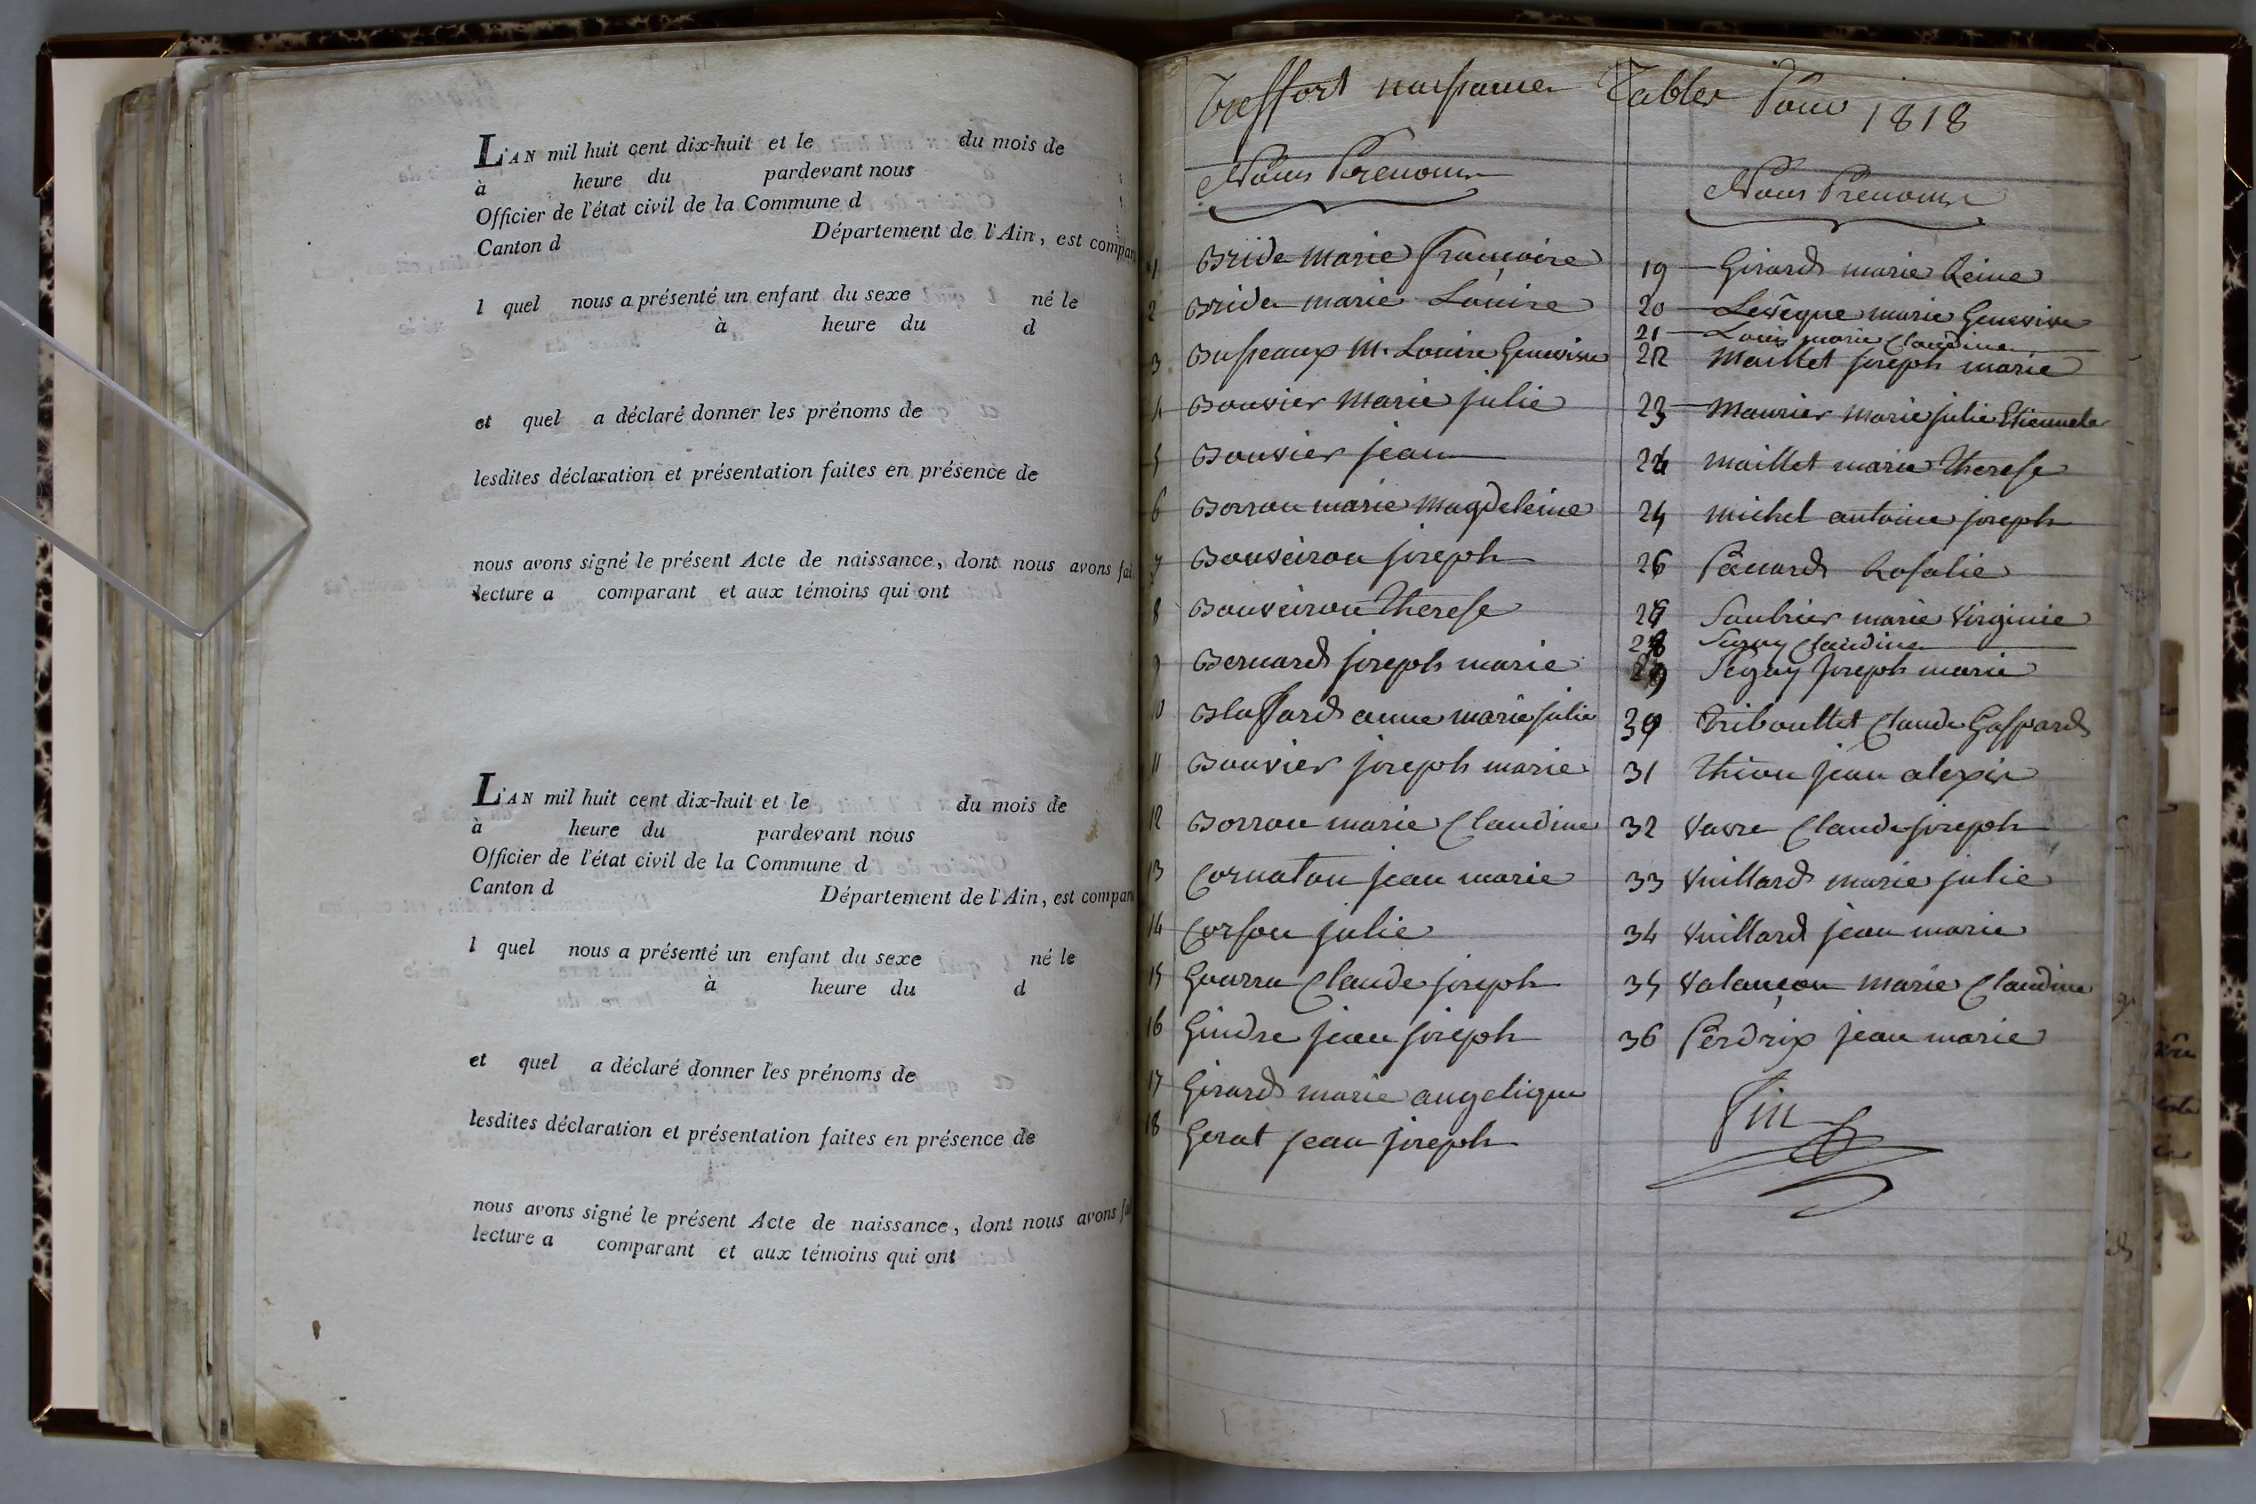 L'AN mil huit cent dix-huit et le du mois de
à heure du pardevant nous
Officier de l'état civil de la Commune d
Canton d Département de l'Ain, est compar
l quel nous a présenté un enfant du sexe né le
à heure du d
et quel a déclaré donner les prénoms de
lesdites déclaration et présentation faites en présence de
nous avons signé le présent Acte de naissance, dont nous avons fai
lecture a comparant et aux témoins qui ont
L'AN mil huit cent dix-huit et le du mois de
à heure du pardevant nous
Officier de l'état civil de la Commune d
Canton d Département de l'Ain, est compar
l quel nous a présenté un enfant du sexe né le
à heure du d
et quel a déclaré donner les prénoms de
lesdites déclaration et présentation faites en présence de
nous avons signé le présent Acte de naissance, dont nous avons fai
lecture a comparant et aux témoins qui ont
Treffort naissance Tables Pour 1818
Noms Prenoms
1 Bride marie françoise
2 Bride marie Louise
3 Busseaux M. Louise Genevive
4 Bouvier Marie julie
5 Bouvier jean
6 Borron marie Magdeleine
7 Bouveiron joseph
8 Bouveiron Therese
9 Bernard joseph marie
10 Blaffard anne marie julie
11 Bouvier joseph marie
12 Borron marie Claudine
13 Cornaton jean marie
14 Corsou julie
15 Gourra Claude joseph
16 Gindre jean joseph
17 Girard marie angelique
18 Gerat jean joseph
Noms Prenoms
19 Girard marie Reine
20 Levêque marie Genevive
21 Louis marie Claudine
22 Maillet joseph marie
23 Maurier Marie julie Etiennete
24 Maillet marie Therese
25 Michel antoine joseph
26 Pauard Rosalie
27 Saubrier marie Virginie
28 Claudine
29 Segay Joseph marie
30 Triboullet Claude Gaspard
31 Thion jean alexis
32 Vavre Claude joseph
33 Vuillard marie julie
34 Vuillard jean marie
35 Valançon Marie Claudine
36 Perdrix jean marie
Fin